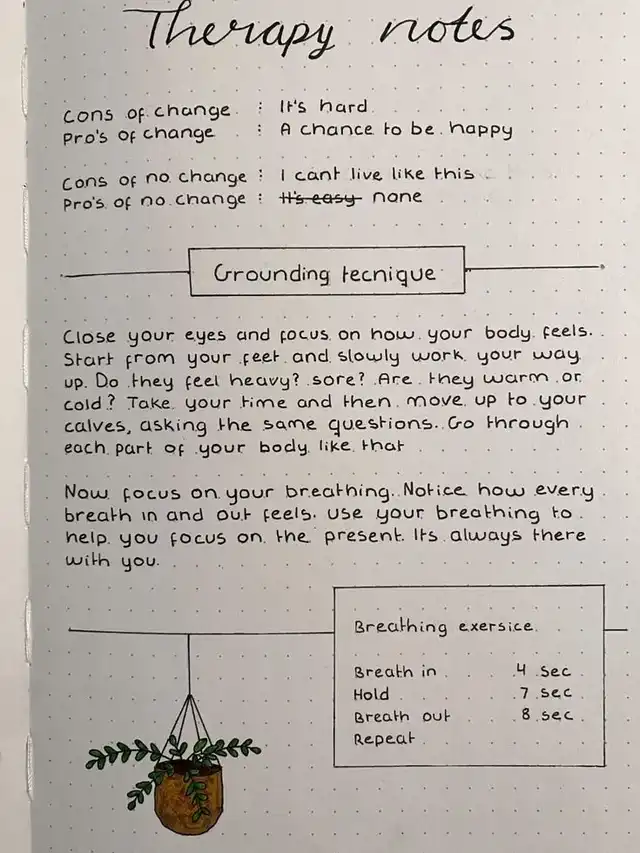 Therapy notes
Cons of change : It's hard
Pro's of change : A chance to be happy
Cons of no change : I cant live like this
Pro's of no change : It's easy none
Grounding tecnique
Close your eyes and focus on how your body feels.
Start from your feet and slowly work your way
up. Do they feel heavy? sore? Are they warm or
cold? Take your time and then move up to your
calves, asking the same questions. Go through
each part of your body like that
Now focus on your breathing. Notice how every
breath in and out feels. use your breathing to
help you focus on the present. Its always there
with you.
Breathing exersice
Breath in 4 sec
Hold 7 sec
Breath out 8 sec
Repeat